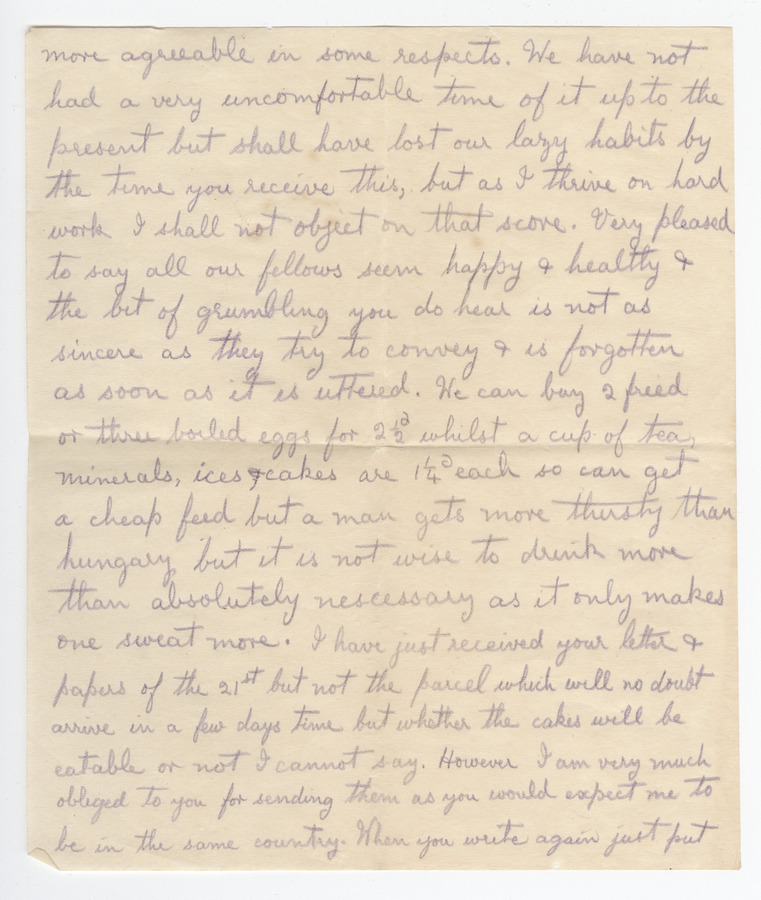 more agreeable in some respects. We have not
had a very uncomfortable time of it up to the
present but shall have lost our lazy habits by
the time you receive this, but as I thrive on hard
work I shall not object on that score. Very pleased
to say all our fellows seem happy & healthy &
the bit of grumbling you do hear is not as
sincere as they try to convey & is forgotten
as soon as it is uttered. We can buy 2 fried
or three boiled eggs for 2½d whilst a cup of tea,
minerals, ices & cakes are 1¼d each so can get
a cheap feed but a man gets more thirsty than
hungary but it is not wise to drink more
than absolutely nescessary as it only makes
one sweat more. I have just received your letter &
papers of the 21st but not the parcel which will no doubt
arrive in a few days time but whether the cakes will be
eatable or not I cannot say. However I am very much
obliged to you for sending them as you would expect me to
be in the same country. When you write again just put